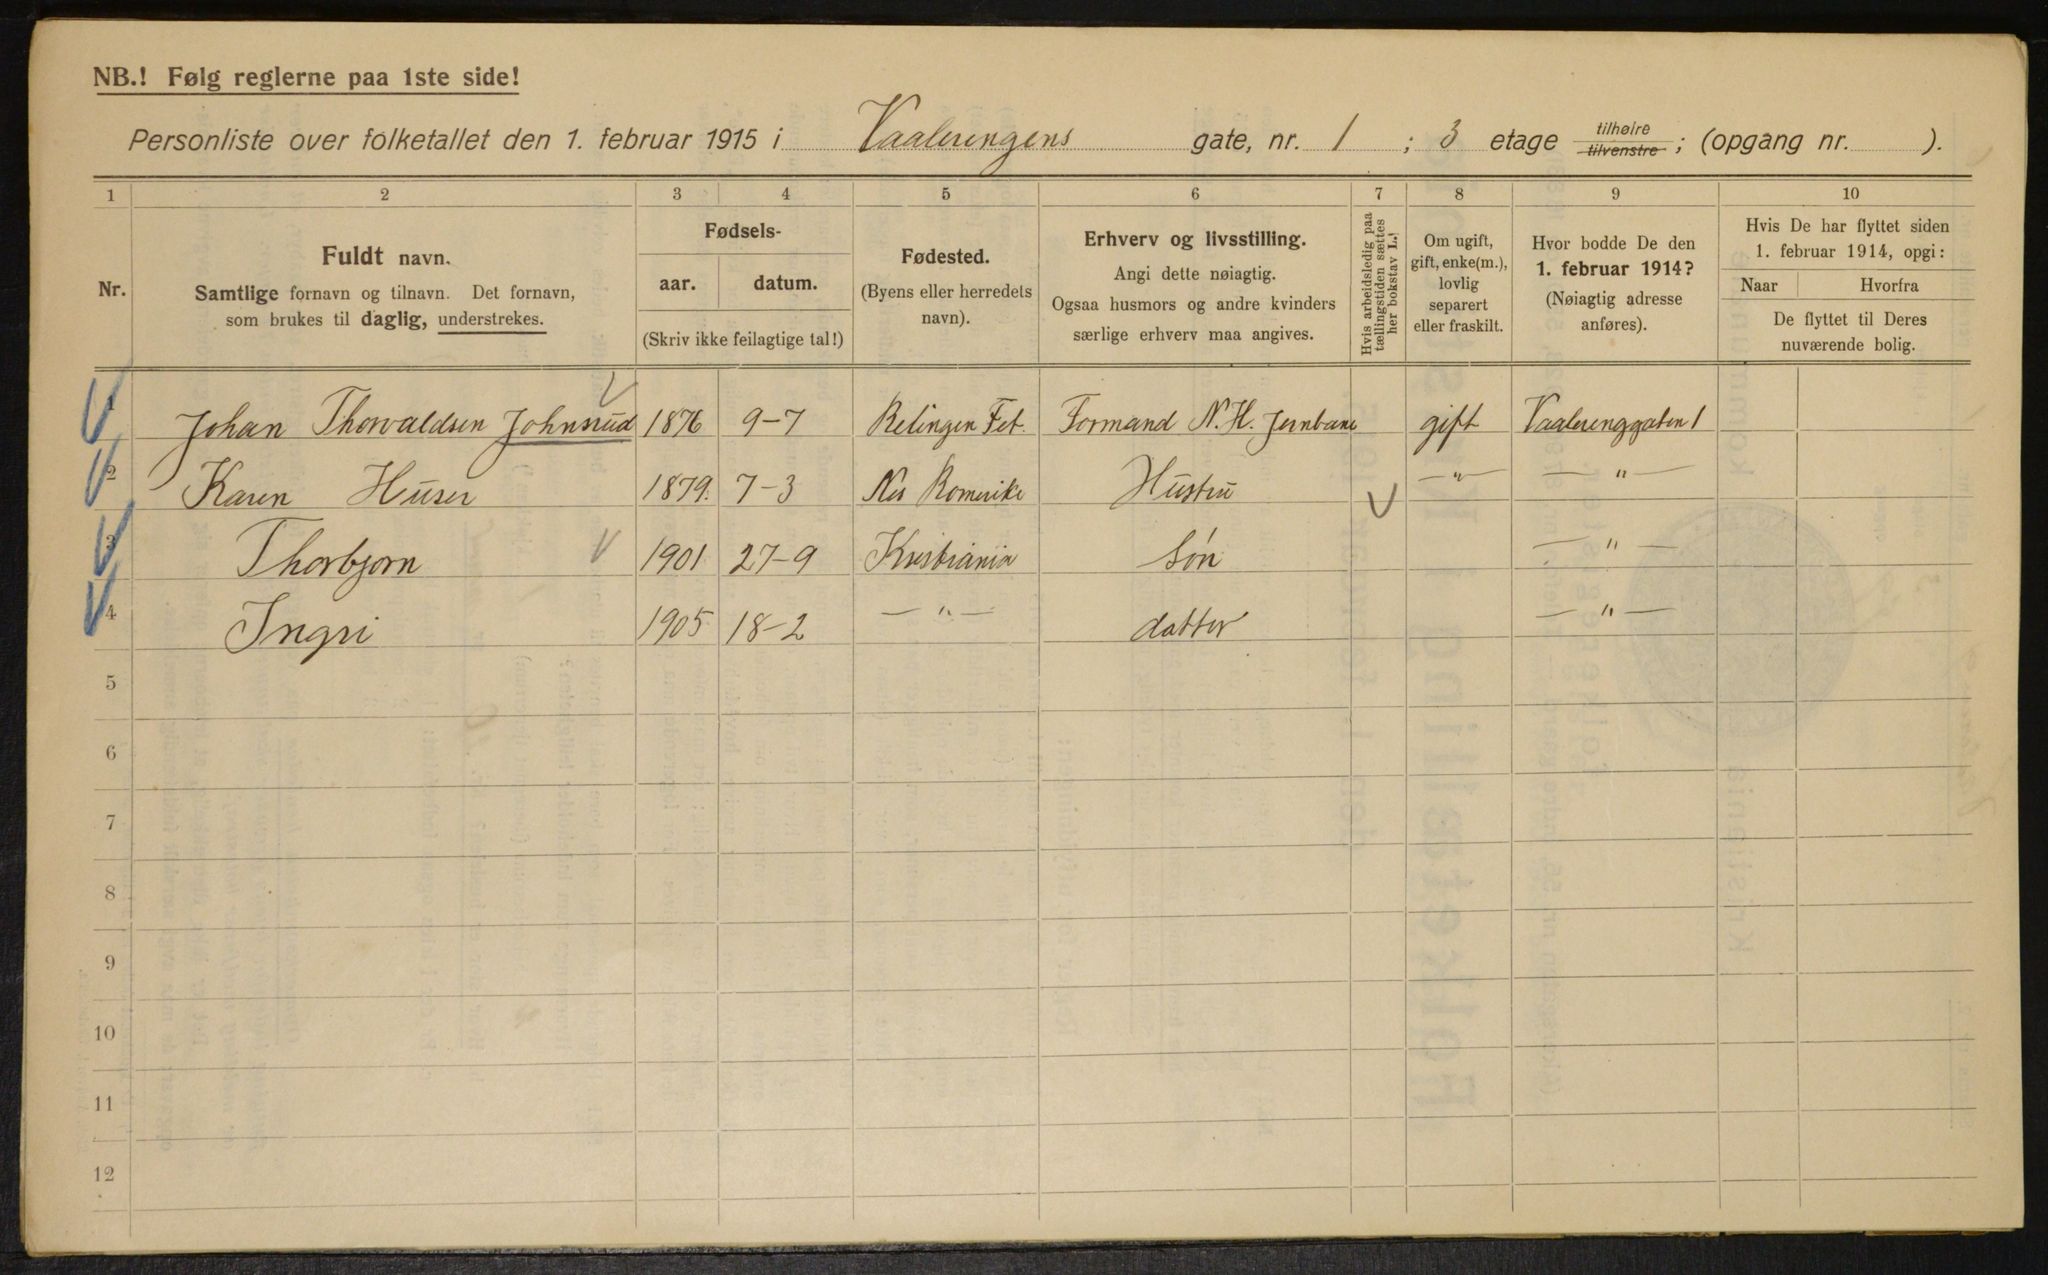 NB.! Følg reglerne paa 1ste side!
Personliste over folketallet den 1. februar 1915 i Vaalerengens gate, nr. 1 ; 3 etage tilhøire tilvenstre ; (opgang nr. ).
1 2 3 4 5 6 7 8 9 10
Nr.
Fuldt navn.
Samtlige fornavn og tilnavn. Det fornavn,
som brukes til daglig, understrekes.
Fødsels-
aar. datum.
(Skriv ikke feilagtige tal!)
Fødested.
(Byens eller herredets
navn).
Erhverv og livsstilling.
Angi dette nøiagtig.
Ogsaa husmors og andre kvinders
særlige erhverv maa angives.
Hvis arbeidsledig paa
tællingstiden sættes
her bokstav L.!
Om ugift,
gift, enke(m.),
lovlig
separert
eller fraskilt.
Hvor bodde De den
1. februar 1914?
(Nøiagtig adresse
anføres).
Hvis De har flyttet siden
1. februar 1914, opgi:
Naar Hvorfra
De flyttet til Deres
nuværende bolig.
1 Johan Thorvaldsen Johnsrud 1876 9-7 Relingen Fet. Formand N. H. Jernbane gift Vaalerenggaten 1
2 Karen Huser 1879. 7-3 Nes Romerike Hustru — " — — " —
3 Thorbjørn 1901 27-9 Kristiania Søn — " —
4 Ingri 1905 18-2 — " — datter — " —
5
6
7
8
9
10
11
12